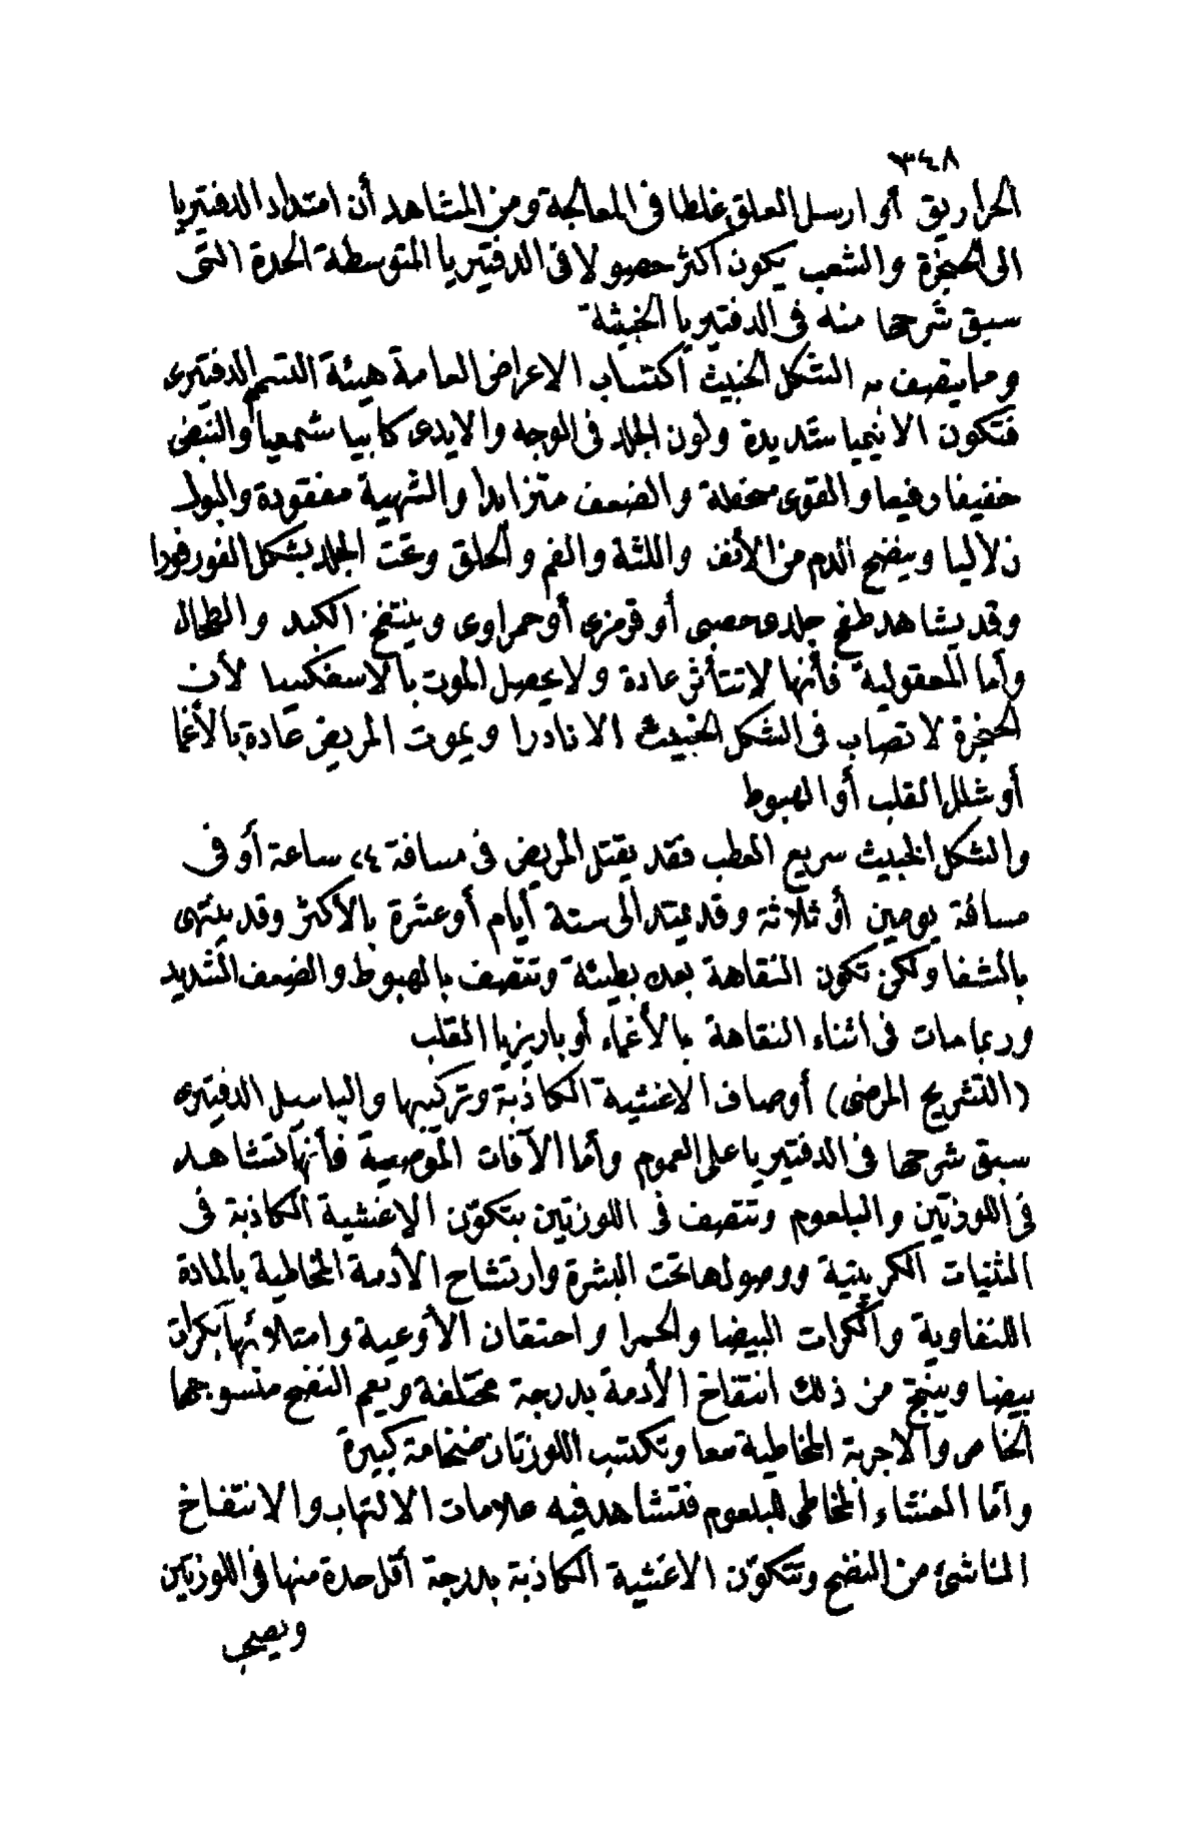 ٣٤٨
الحراريق أو ارسل العلق غلطا فى المعالجة ومن المشاهد أن امتداد الدفتيريا
الى الحنجرة والشعب يكون أكثر حصولا فى الدفتيريا المتوسطة الحدة التى
سبق شرحها منه فى الدفتيريا الخبيثة
ومما يتصف به الشكل الخبيث أكتساب الاعراض العامة هيئة التسمم الدفتيرى
فتكون الانيميا شديدة ولون الجلد فى الوجه والايدى كابيا شمعيا والنبض
خفيفا رفيعا والقوى منحطة والضعف متزايدا والشهية مفقودة والبول
زلاليا وينضح الدم من الأنف واللثة والفم والحلق وتحت الجلد بشكل الفورفورا
وقد يشاهد طفح جلدى حصبى أو قرمزى أو حمراوى وينتفخ الكبد والطحال
وأما المعقولية فأنها لا تتأثر عادة ولا يحصل الموت بالاسفكسيا لأن
الحنجرة لا تصاب فى الشكل الخبيث الا نادرا ويموت المريض عادة بالأغما
أو شلل القلب أو الهبوط
والشكل الخبيث سريع العطب فقد يقتل المريض فى مسافة ٢٤ ساعة أو فى
مسافة يومين أو ثلاثة وقد يمتد الى ستة أيام أو عشرة بالأكثر وقد ينتهى
بالشفا ولكن تكون النقاهة بعده بطيئة وتتصف بالهبوط والضعف الشديد
وربما مات فى اثناء النقاهة بالأغماء أو باريزيا القلب
(التشريح المرضى) أوصاف الاغشية الكاذبة وتركيبها والباسيل الدفتيرى
سبق شرحها فى الدفتيريا على العموم وأما الآفات الموضعية فأنها تشاهد
فى اللوزتين والبلعوم وتتصف فى اللوزتين بتكوّن الاغشية الكاذبة فى
الثنيات الكريبتية ووصولها تحت البشرة وارتشاح الأدمة المخاطية بالمادة
اللنفاوية والكرات البيضا والحمرا واحتقان الأوعية وامتلائها بكرات
بيضا وينتج من ذلك انتفاخ الأدمة بدرجة مختلفة ويعم النضح منسوجها
الخاص والاجربة المخاطية معا وتكتسب اللوزتان ضخامة كبيرة
وأما الغشاء المخاطى للبلعوم فتشاهد فيه علامات الالتهاب والانتفاخ
الناشئ من النضح وتتكوّن الاغشية الكاذبة بدرجة أقل حدة منها فى اللوزتين
ويصحب